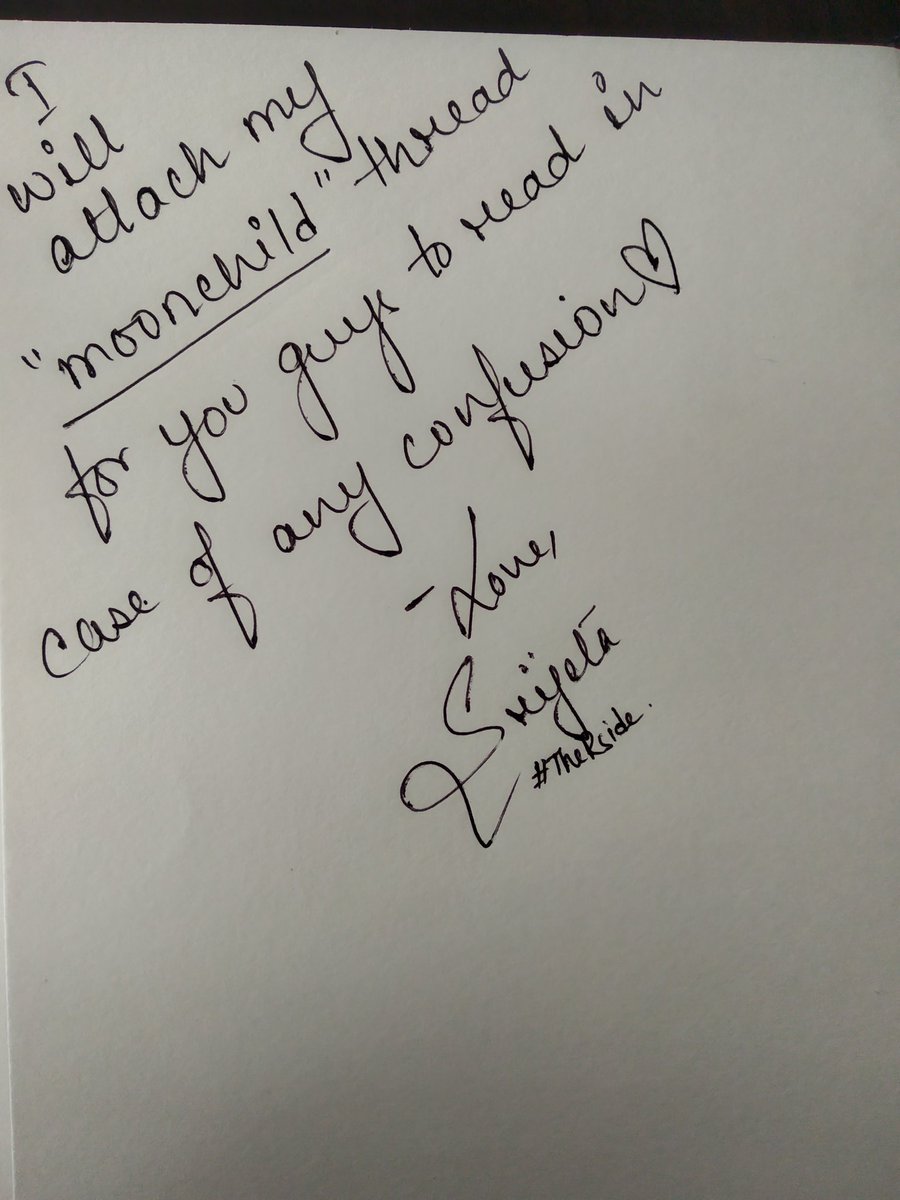 I
will
attach my
"moonchild" thread
for you guys to read in
case of any confusion♡
- Love,
Srijeta
#TheRside.